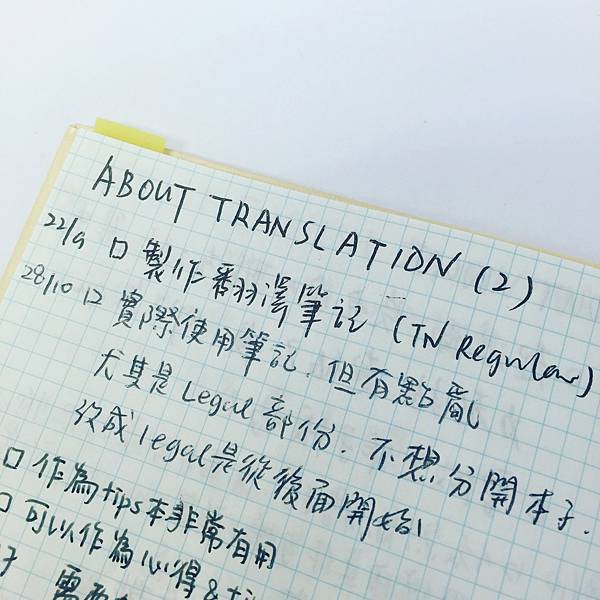 ABOUT TRANSLATION (2)
22/9 □ 製作翻譯筆記 (TN Regular)
28/10 □ 實際使用筆記, 但有點亂
尤其是 Legal 部份. 不想分開本子.
改成 legal 是從後面開始
□ 作為 tips 本非常有用
□ 可以作為心得 &
需要